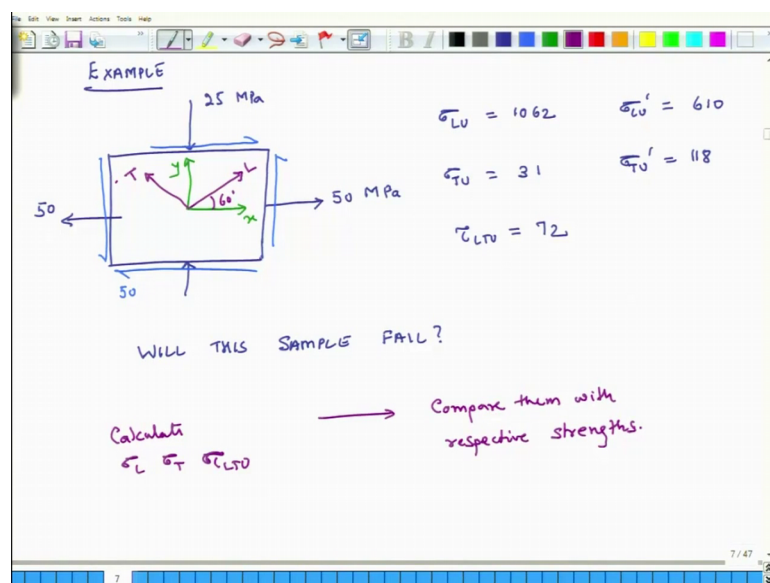 File Edit View Insert Actions Tools Help
EXAMPLE
25 MPa
σLU = 1062 σLU' = 610
T y L
60°
x
50
50 MPa
σTU = 31 σTU' = 118
τLTU = 72
50
WILL THIS SAMPLE FAIL?
Calculate
σL σT στLTU
Compare them with
respective strengths.
7 / 47
7